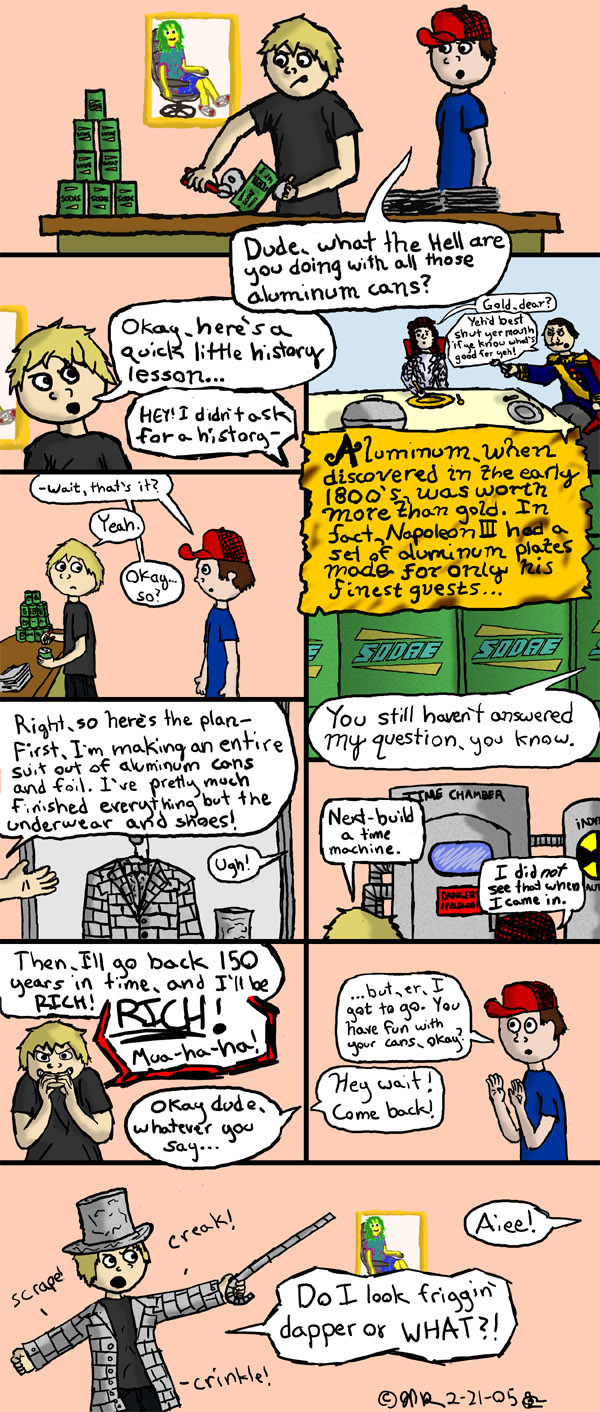 SODAE
SODAE
SODAE
Dude, what the Hell are
you doing with all those
aluminum cans?
Okay, here's a
quick little history
lesson...
HEY! I didn't ask
for a history-
Gold, dear?
Yeh'd best
shut yer mouth
if ye know what's
good fer yeh!
Aluminum, when
discovered in the early
1800's, was worth
more than gold. In
fact, Napoleon III had a
set of aluminum plates
made for only his
finest guests...
-Wait, that's it?
Yeah.
Okay...
so?
SODAE
SODAE
You still haven't answered
my question, you know.
Right, so here's the plan-
First, I'm making an entire
suit out of aluminum cans
and foil. I've pretty much
finished everything but the
underwear and shoes!
Ugh!
TIME CHAMBER
Next-build
a time
machine.
DANGER
I did not
see that when
I came in.
Then, I'll go back 150
years in time, and I'll be
RICH!
RICH!
Mua-ha-ha!
Okay dude,
whatever you
say...
...but, er, I
got to go. You
have fun with
your cans, okay?
Hey wait!
Come back!
scrape!
creak!
Aiee!
Do I look friggin'
dapper or WHAT?!
-crinkle!
2-21-05